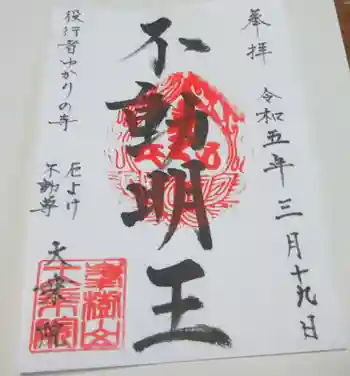 奉拝
令和五年三月十九日
不動明王
役行者ゆかりの寺
石よけ
不動尊
大乗院